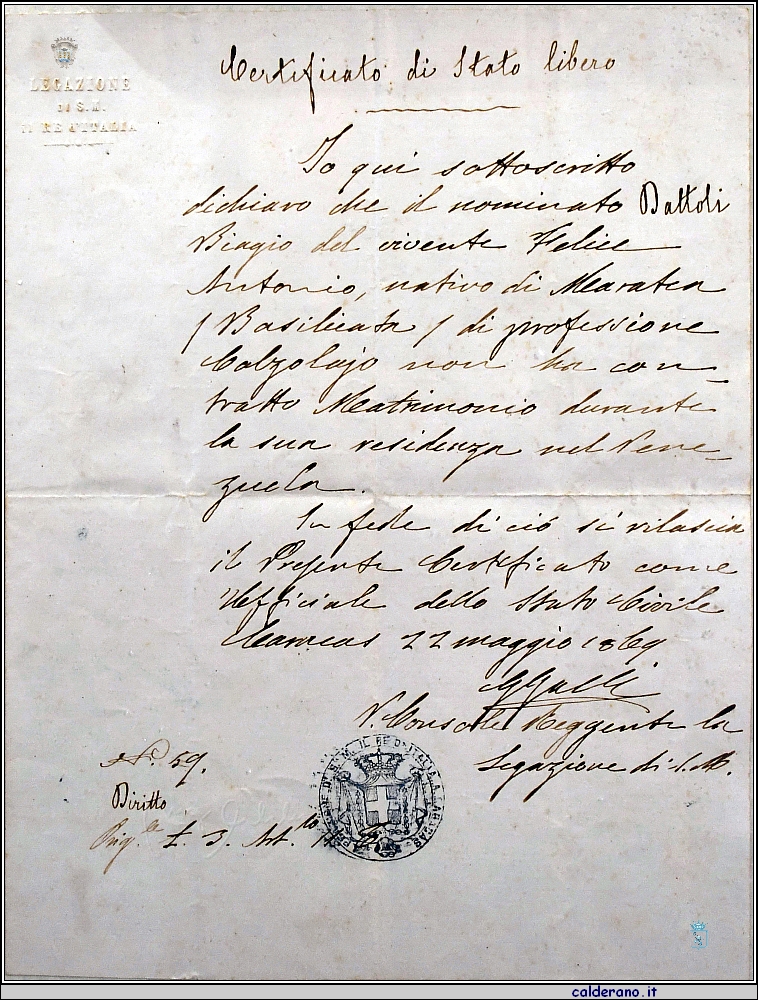 LEGAZIONE
DI S.M.
IL RE D'ITALIA
Certificato di Stato libero
Io qui sottoscritto
dichiaro che il nominato Dattoli
Biagio del vivente Felice
Antonio, nativo di Maratea
/ Basilicata / di professione
Calzolajo non ha con-
tratto Matrimonio durante
la sua residenza nel Vene-
zuela.
In fede di ciò si rilascia
il Presente Certificato come
Uefficiale dello Stato Civile
Caracas 22 maggio 1869
GGalli
V. Console Reggente la
Legazione di S.M.
N.º 59.
Diritto
£. 3. Art.
DI S.M. IL RE D'ITALIA A CARACAS
calderano.it